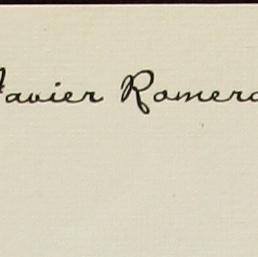 Javier Romero